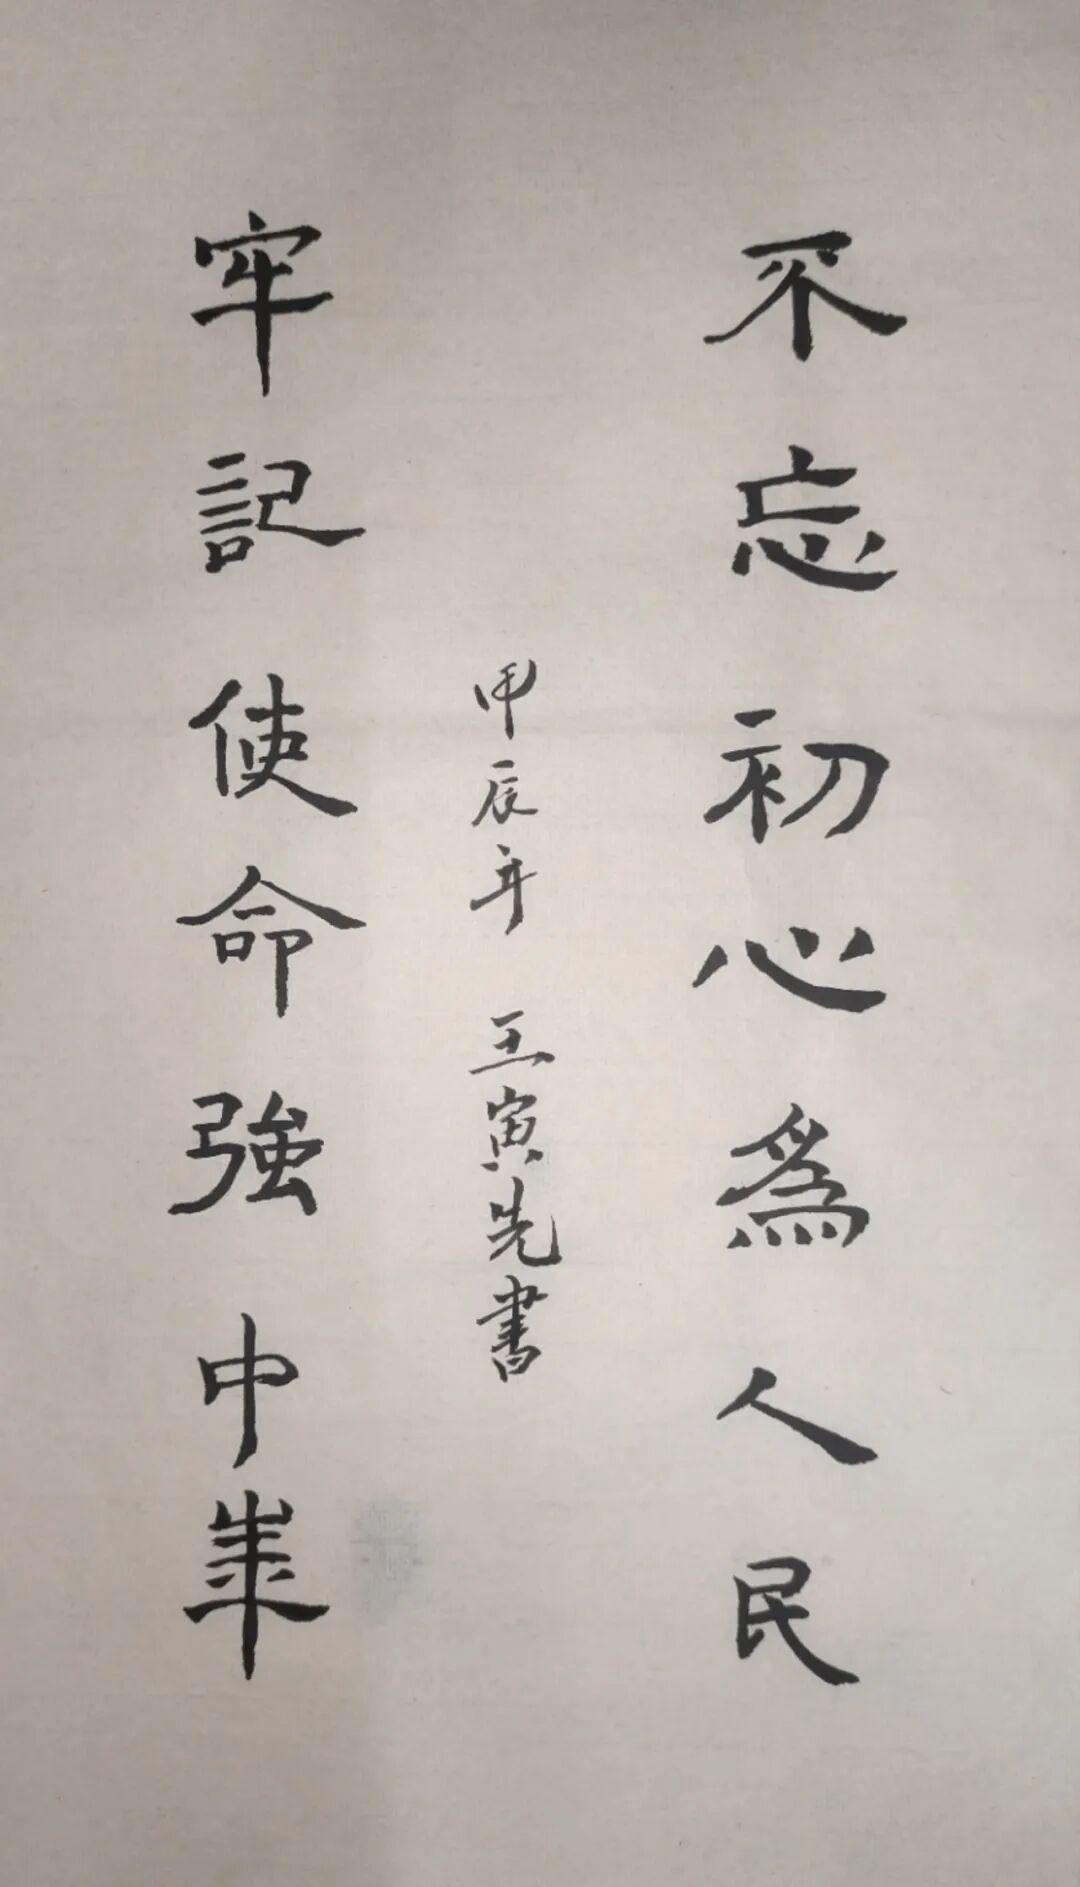 不忘初心為人民
牢記使命強中華
甲辰年 王寅先書